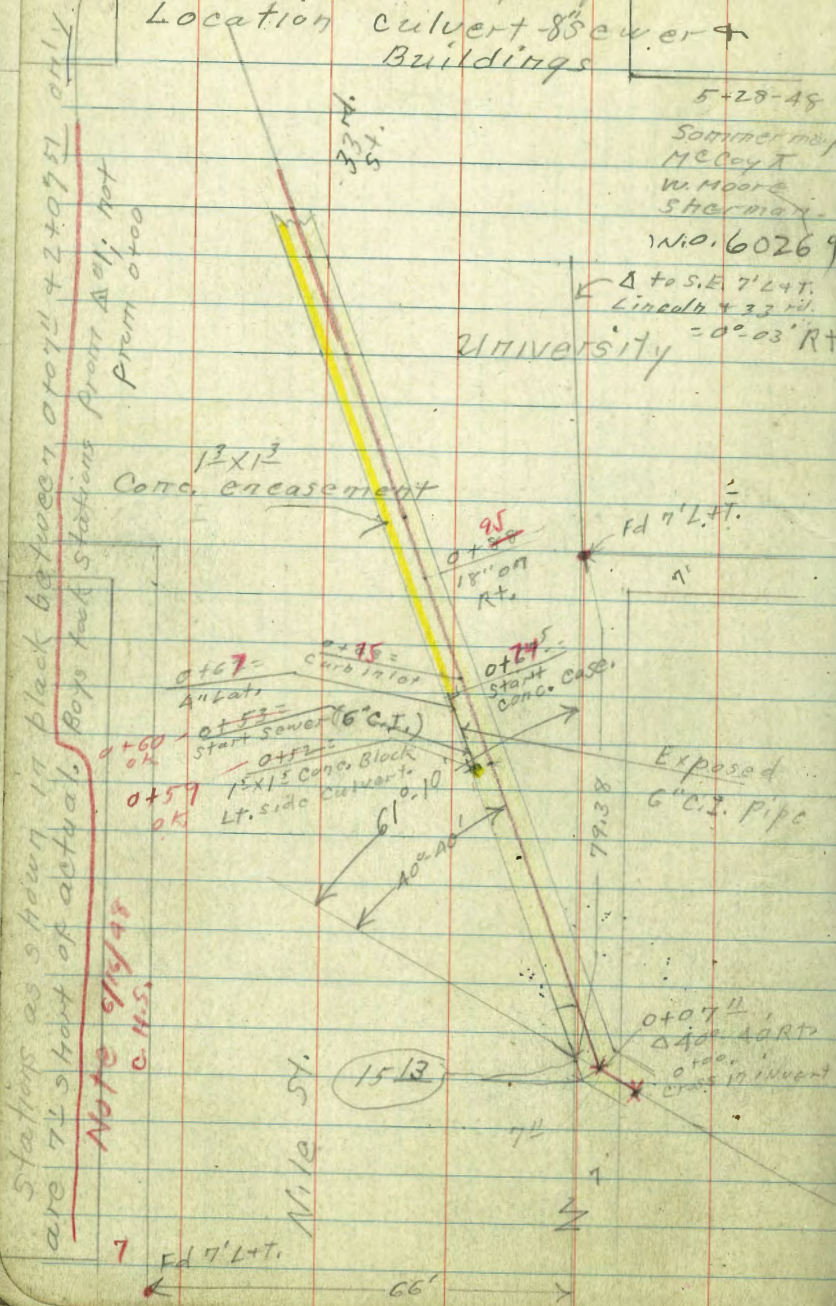 Location culvert - 8" sewer &
Buildings
5-28-48
McCoy π
W. Moore
Sherman
W.O. 60269
33rd. St.
Δ to S.E. 7' L+T.
Lincoln + 33rd.
= 0°-03' Rt
University
1³ x 1³
Conc. encasement
Fd 7' L.+T.
7'
0+88 95
18" on
Rt.
0+67=
4" Lat.
0+88= 75
Curb inlet
0+74⁵=
start
conc. case.
0+60 ok
0+53=
start sewer (6" C.I.)
0+59 ok
0+52=
1⁵x1⁵ Conc. Block
Lt. side Culvert.
Exposed
6" C.I. pipe
61°-10'
40°-40'
79.38
0+07¹¹
Δ 40°-40' Rt.
0+00.
Cross in invert
15 13
7¹¹
Nile St.
N
7
Fd 7' L+T.
66'
Stations as shown in black between 0+07¹¹ + 2+07⁵¹ only
are 7¹¹ short of actual. Boys took stations from Δ pt. not
from 0+00
Note 6/16/48
C.H.S.